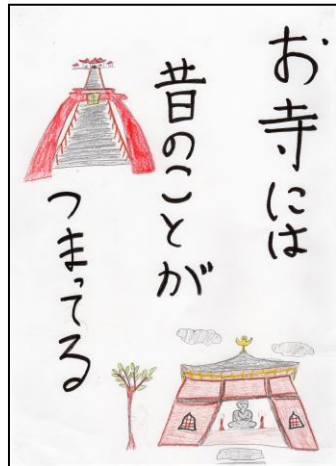 お寺には
昔のことが
つまってる